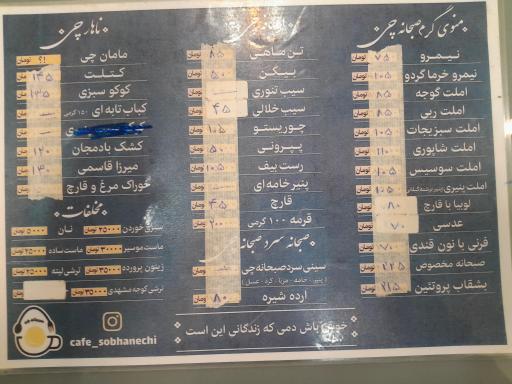 منوی گرم صبحانه چی
نیمرو ۷۵ تومان
نیمرو خرما گردو ۱۰۵ تومان
املت گوجه ۸۵ تومان
املت ربی ۸۵ تومان
املت سبزیجات ۱۰۵ تومان
املت شاپوری ۱۱۰ تومان
املت سوسیس ۱۰۵ تومان
املت پنیری ۱۰۵ تومان
لوبیا با قارچ ۸۰
عدسی ۷۰
فرنی با نون قندی ۷۰ تومان
صبحانه مخصوص ۲۲۵ تومان
بشقاب پروتئین ۲۱۵ تومان
تن ماهی ۸۵ تومان
بیکن ۵۰ تومان
سیب تنوری تومان
سیب خلالی ۴۵ تومان
چوریستو ۱۰۵ تومان
پپرونی ۵۰ تومان
رست بیف ۱۰۵ تومان
پنیر خامه ای تومان
قارچ ۴۵ تومان
قرمه ۱۰۰ گرمی ۲۰۰ تومان
صبحانه سرد صبحانه چی
سینی سرد صبحانه چی تومان
(پنیر - خامه - مربا - کره - عسل)
ارده شیره ۸۰ تومان
خوش باش دمی که زندگانی این است
ناهار چی
مامان چی ؟! تومان
کتلت ۱۴۵ تومان
کوکو سبزی ۱۳۵ تومان
کباب تابه ای ۱۵۰ گرمی تومان
کشک بادمجان ۱۲۰ تومان
میرزا قاسمی ۱۳۰ تومان
خوراک مرغ و قارچ تومان
مخلفات
سبزی خوردن ۲۵۰۰۰ تومان نان ۵۰۰۰ تومان
ماست موسیر ۳۰۰۰۰ تومان ماست ساده ۲۵۰۰۰ تومان
زیتون پرورده ۳۵۰۰۰ تومان ترشی لیته ۲۵۰۰۰ تومان
ترشی گوجه مشهدی ۳۵۰۰۰ تومان
cafe_sobhanechi